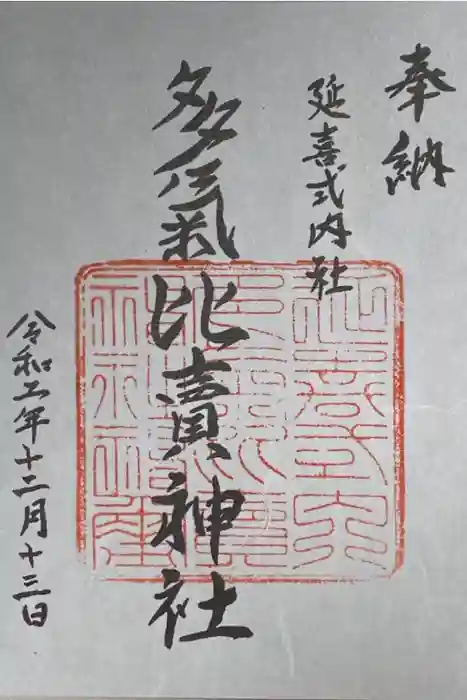 奉納
延喜式内社
多氣比賣神社
令和五年十二月十三日